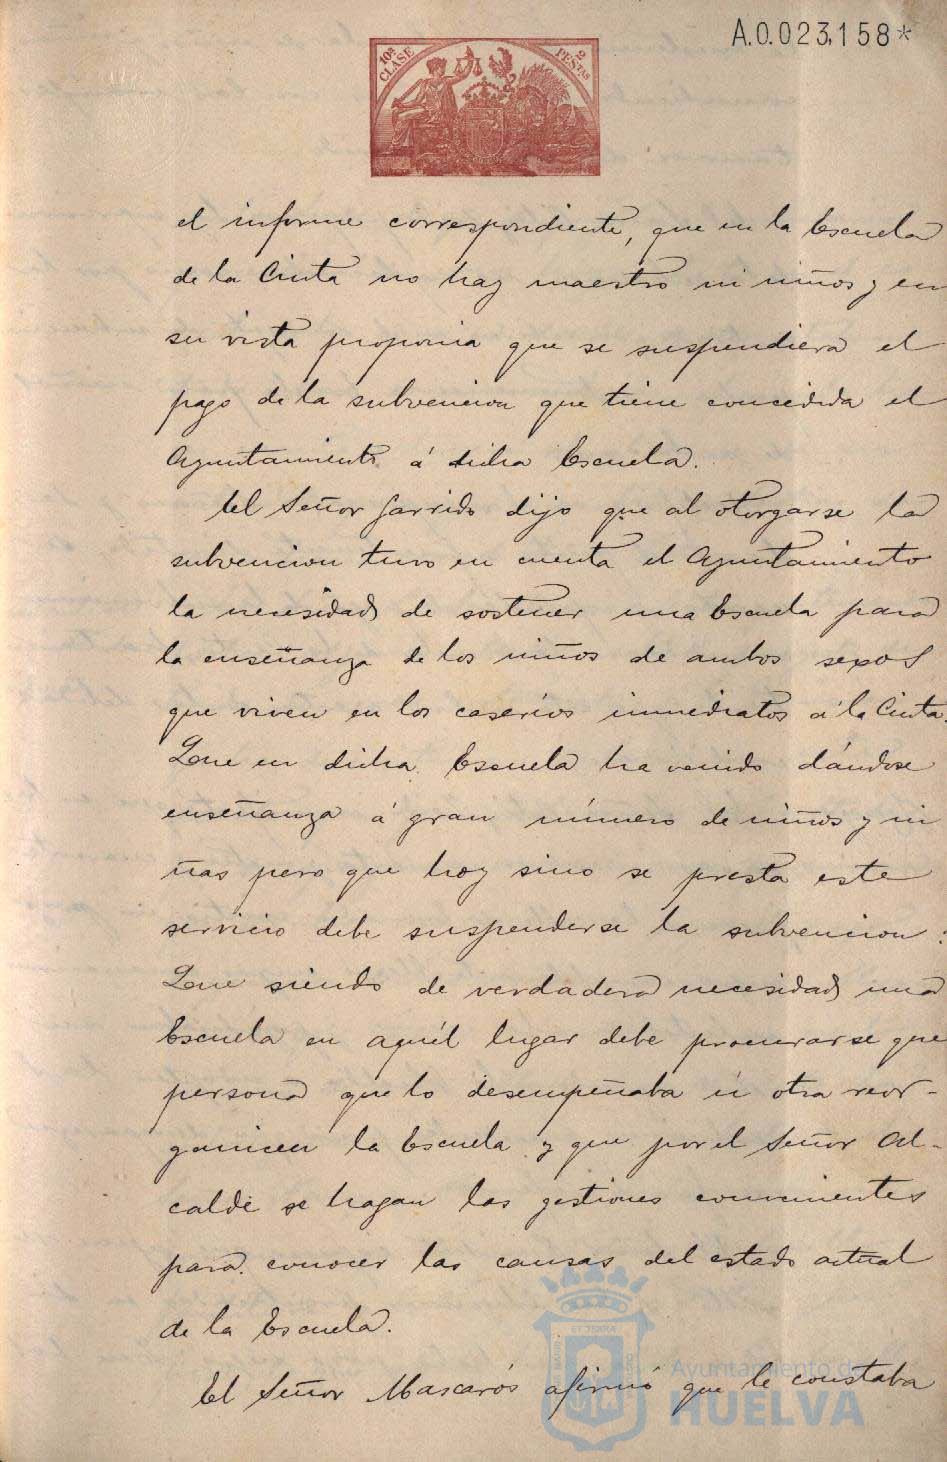 A.0.023,158*
10ª CLASE
2 PESTAS
el informe correspondiente, que en la Escuela
de la Cinta no hay maestro ni niños y en
su vista proponia que se suspendiera el
pago de la subvencion que tiene concedida el
Ayuntamiento á dicha Escuela.
El Señor Garrido dijo que al otorgarse la
subvencion tuvo en cuenta el Ayuntamiento
la necesidad de sostener una Escuela para
la enseñanza de los niños de ambos sexos
que viven en los caseríos inmediatos á la Cinta.
Que en dicha Escuela ha venido dándose
enseñanza á gran número de niños y ni
ñas pero que hoy sino se presta este
servicio debe suspenderse la subvencion:
Que siendo de verdadera necesidad una
Escuela en aquél lugar debe procurarse que
persona que lo desempeñaba ú otra reor-
ganicen la Escuela y que por el Señor Al-
calde se hagan las gestiones convenientes
para conocer las causas del estado actual
de la Escuela.
El Señor Mascarós afirmó que le constaba
Ayuntamiento de
HUELVA